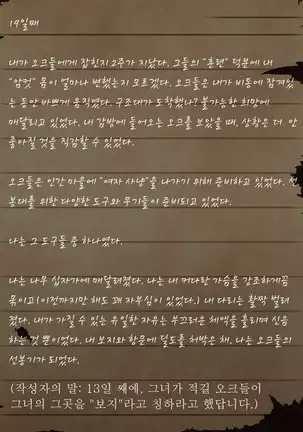 19일째
내가 오크들에게 잡힌지 2주가 지났다. 그들의 "훈련" 덕분에 내
"암컷" 몸이 얼마나 변했는지 모르겠다. 오크들은 내가 비통에 잠겨있
는 동안 바쁘게 움직였다. 구조대가 도착했나? 불가능한 희망에
매달리고 있었다. 내 감방에 들어오는 오크를 보았을 때, 상황은 더 안
좋아질 것을 직감할 수 있었다.
오크들은 인간마을에 "여자 사냥"을 나가기 위해 준비하고 있었다. 선
봉대를 위한 다양한 도구와 무기들이 준비되고 있었다.
나는 그 도구들 중 하나였다.
나는 나무 십자가에 매달려졌다. 나는 내 커다란 가슴을 강조하게끔
묶이고(이전까지만 해도 꽤 자부심이 있었다.) 내 다리는 활짝 벌려
졌다. 내가 가질 수 있는 유일한 자유는 부끄러운 체액을 흘리며 신음
하는 것 뿐이었다. 내 보지와 항문에 딜도를 처박은 채, 나는 오크들의
선봉기가 되었다.
(작성자의 말: 13일 째에, 그녀가 적길 오크들이
그녀의 그곳을 "보지"라고 칭하라고 했답니다.)